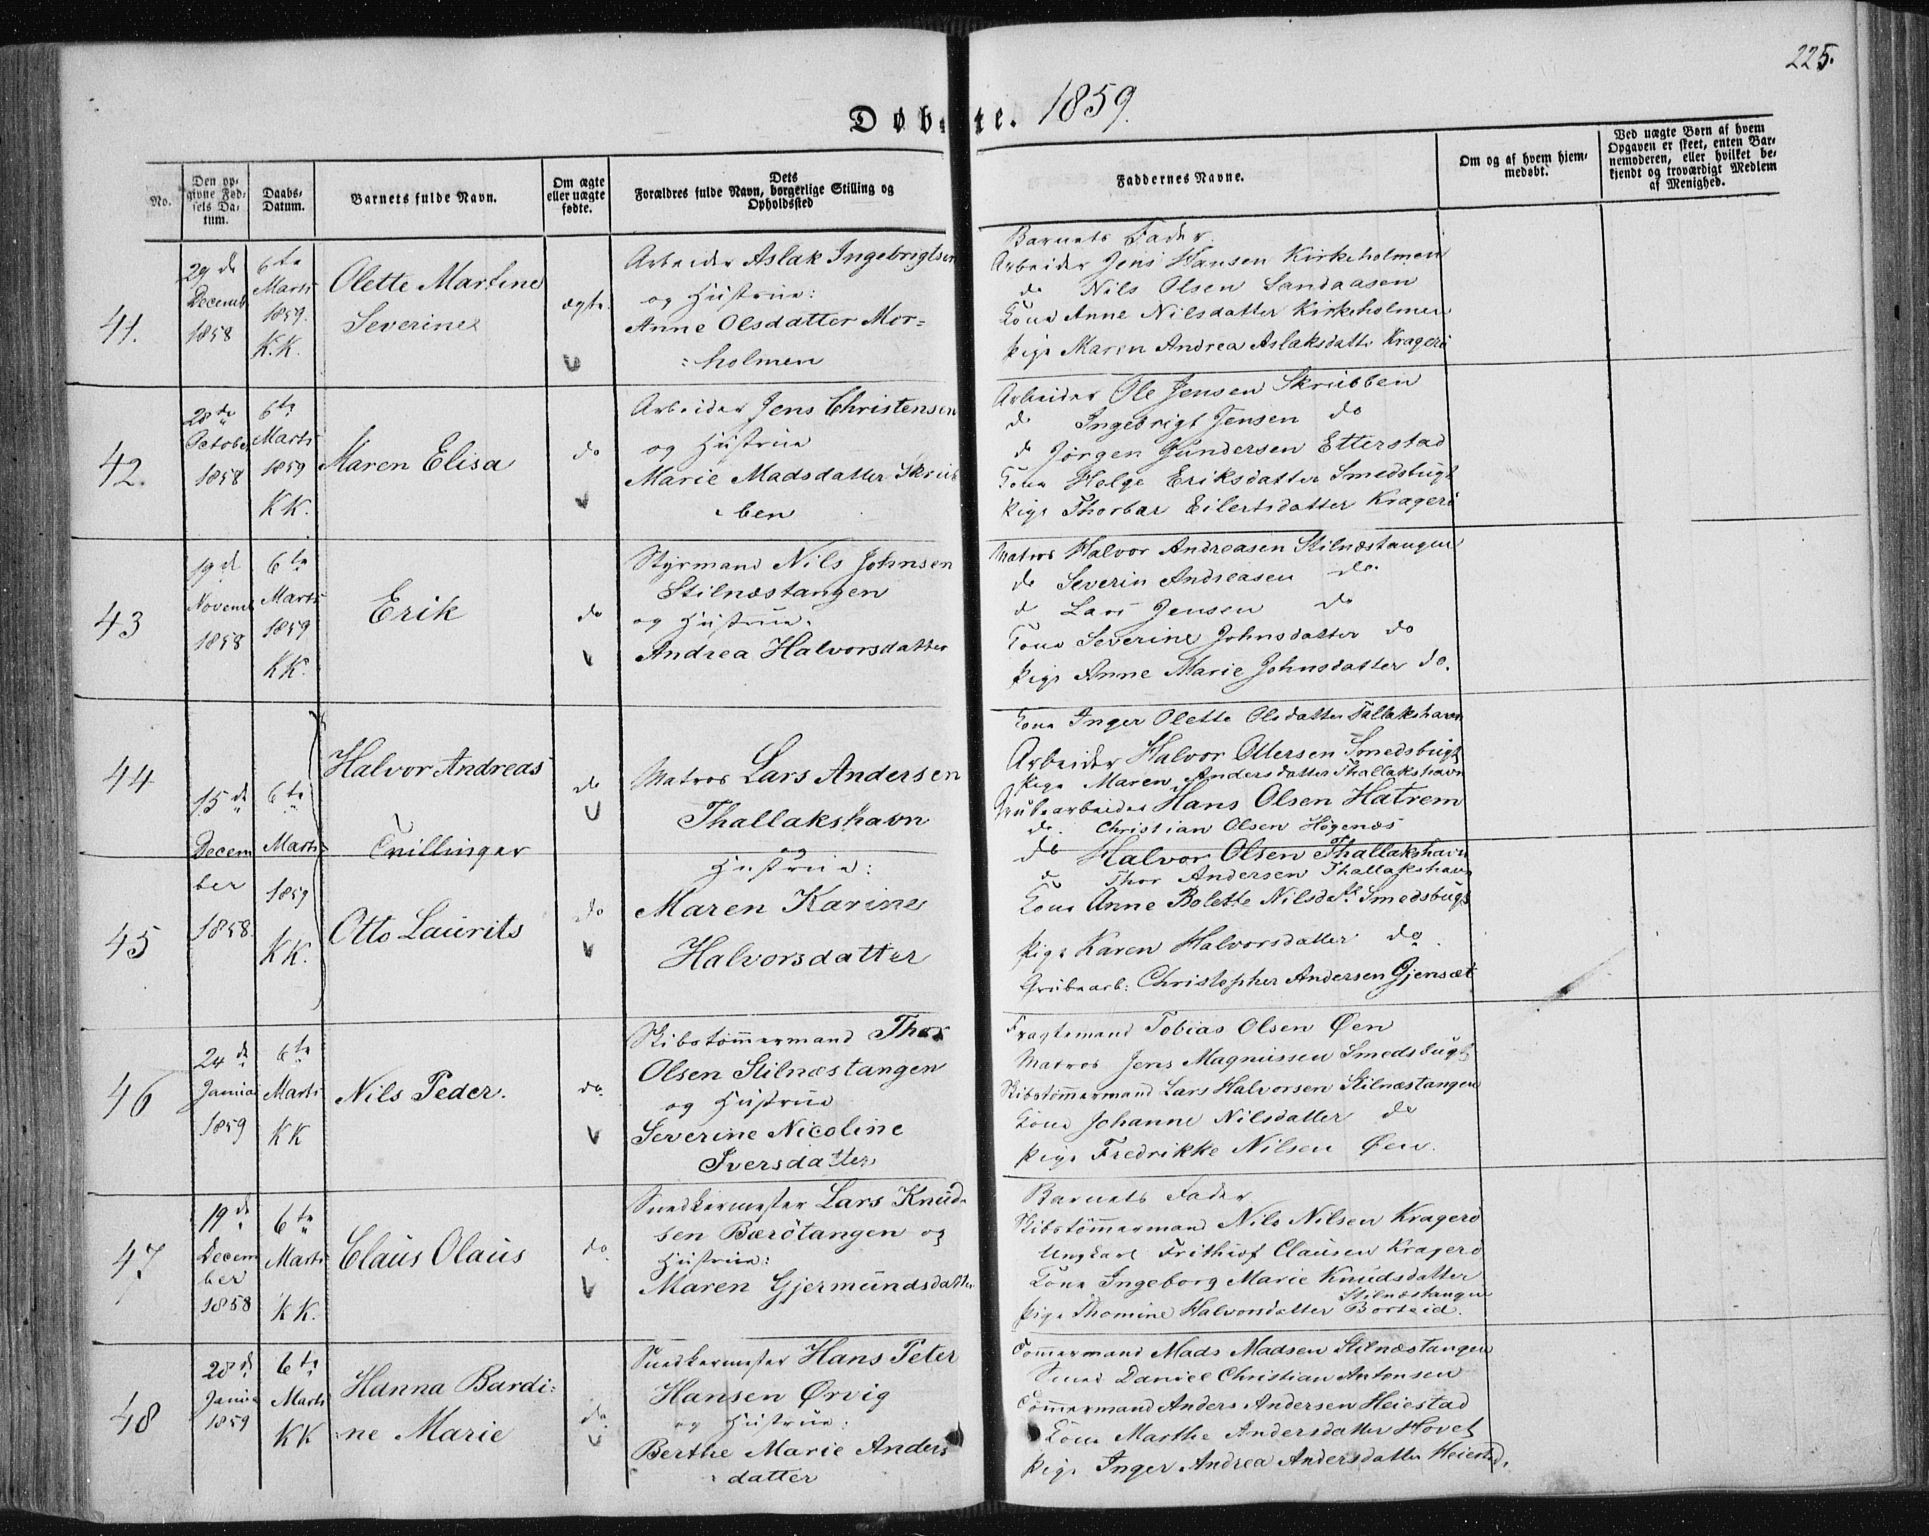 225.
Døbte. 1859.
No.
Den opgivne Fødsels Datum.
Daabs-Datum.
Barnets fulde Navn.
Om ægte eller uægte fødte.
Dets Forældres fulde Navn, borgerlige Stilling og Opholdssted
Faddernes Navne.
Om og af hvem hjemmedøbt.
Ved uægte Børn af hvem Opgaven er skeet, enten Barnemoderen, eller hvilket bekjendt og troværdigt Medlem af Menighed.
41.
29 de
Decemb
1858
6te
Marts
1859.
K.K.
Olette Martine
Severine
ægte.
Arbeider Aslak Ingebrigtsen
og Hustrue:
Anne Olsdatter Mor=
=holmen
Barnets Fader.
Arbeider Jens Hansen Kirkeholmen
do Nils Olsen Sandaasen
Kone Anne Nilsdatter Kirkeholmen
Pige Maren Andrea Aslaksdatter Kragerö
42.
28de
October
1858
6te
Marts
1859
KK.
Maren Elisa
do
Arbeider Jens Christensen
og Hustrue
Marie Madsdatter Skrub
ben
Arbeider Ole Jensen Skrubben
do Ingebrigt Jensen do
do Jørgen Gundersen Etterstad
Kone Helge Eriksdatter Smedsbugt
Pige Thorbar Eilertsdatter Kragerö
43
19 de
Novemb
1858
6te
Marts
1859
KK.
Erik
do
Styrmand Nils Johnsen
Stilnæstangen
og Hustrue.
Andrea Halvorsdatter
Matros Halvor Andreasen Stilnæstangen
do Severin Andreasen do
do Lars Jensen do
Kone Severine Johnsdatter do
Pige Anne Marie Johnsdatter do.
44
15 de
Decem
ber
1858.
6te
Marts
1859
KK.
Halvor Andreas
Tvillinger
do
Matros Lars Andersen
Thallakshavn
og
Hustrue:
Maren Karine
Halvorsdatter
Kone Inger Olette Olsdatter Tallakshavn
Arbeider Halvor Ottersen Smedsbugt
Pige Maren Andersdatter Thallakshavn
Grubearbeider Hans Olsen Hatrem
do. Christian Olsen Høgenæs
45
Otto Laurits
do
do Halvor Olsen Thallakshavn
do Thor Andersen Thallakshavn
Kone Anne Bolette Nilsdatter Smedsbugt
Pige Karen Halvorsdatter do.
Grubearb: Christopher Andersen Gjensæt
46
24 de
Janua
1859
6te
Marts
KK
Nils Peder.
do.
Skibstømmermand Thor
Olsen Stilnæstangen
og Hustrue
Severine Nicoline
Iversdatter
Fragtemand Tobias Olsen Øen
Matros Jens Magnussen Smedsbugt
Skibstømmermand Lars Halvorsen Stilnæstangen
Kone Johanne Nilsdatter do
Pige Fredrikke Nilsen Øen.
47
19 de
Decem
ber
1858
6te
Marts
KK.
Claus Olaus
do.
Snedkermester Lars Knud
sen Barøtangen og
Hustrue:
Maren Gjermundsdatter
Barnets Fader
Skibstømmermand Nils Nilsen Kragerö
Ungkarl Frithiof Clausen Kragerö
Kone Ingeborg Marie Knudsdatter
Stilnæstangen
Pige Thomine Halvorsdatter Borteid.
48
28 de
Janua
1859
6te
Marts
KK
Hanna Bardi=
=ne Marie
do.
Snedkermester Hans Peter
Hansen Ørvig
og Hustrue:
Berthe Marie Anders
datter
Tømmermand Mads Madsen Stilnæstangen
Smed Daniel Christian Antonsen
Tømmermand Anders Andersen Heiestad
Kone Marthe Andersdatter Hovet
Pige Inger Andrea Andersdatter Heiestad.